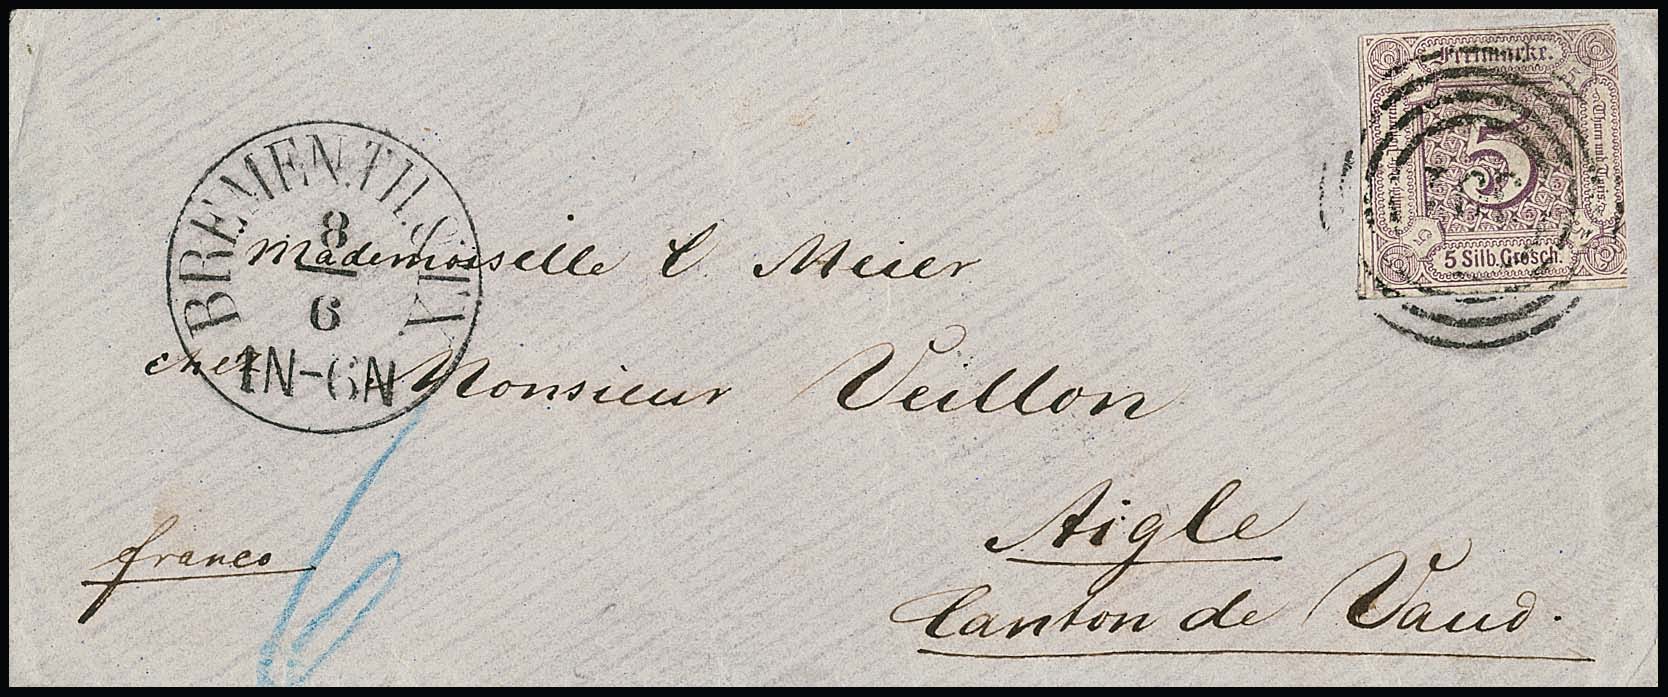 BREMEN.TH.&TX.
8
6
1N-6N
Freimarke.
Thurn und Taxis
5
5 Silb. Grosch.
Mademoiselle C. Meier
chez Monsieur Veillon
Aigle
Canton de Vaud.
franco